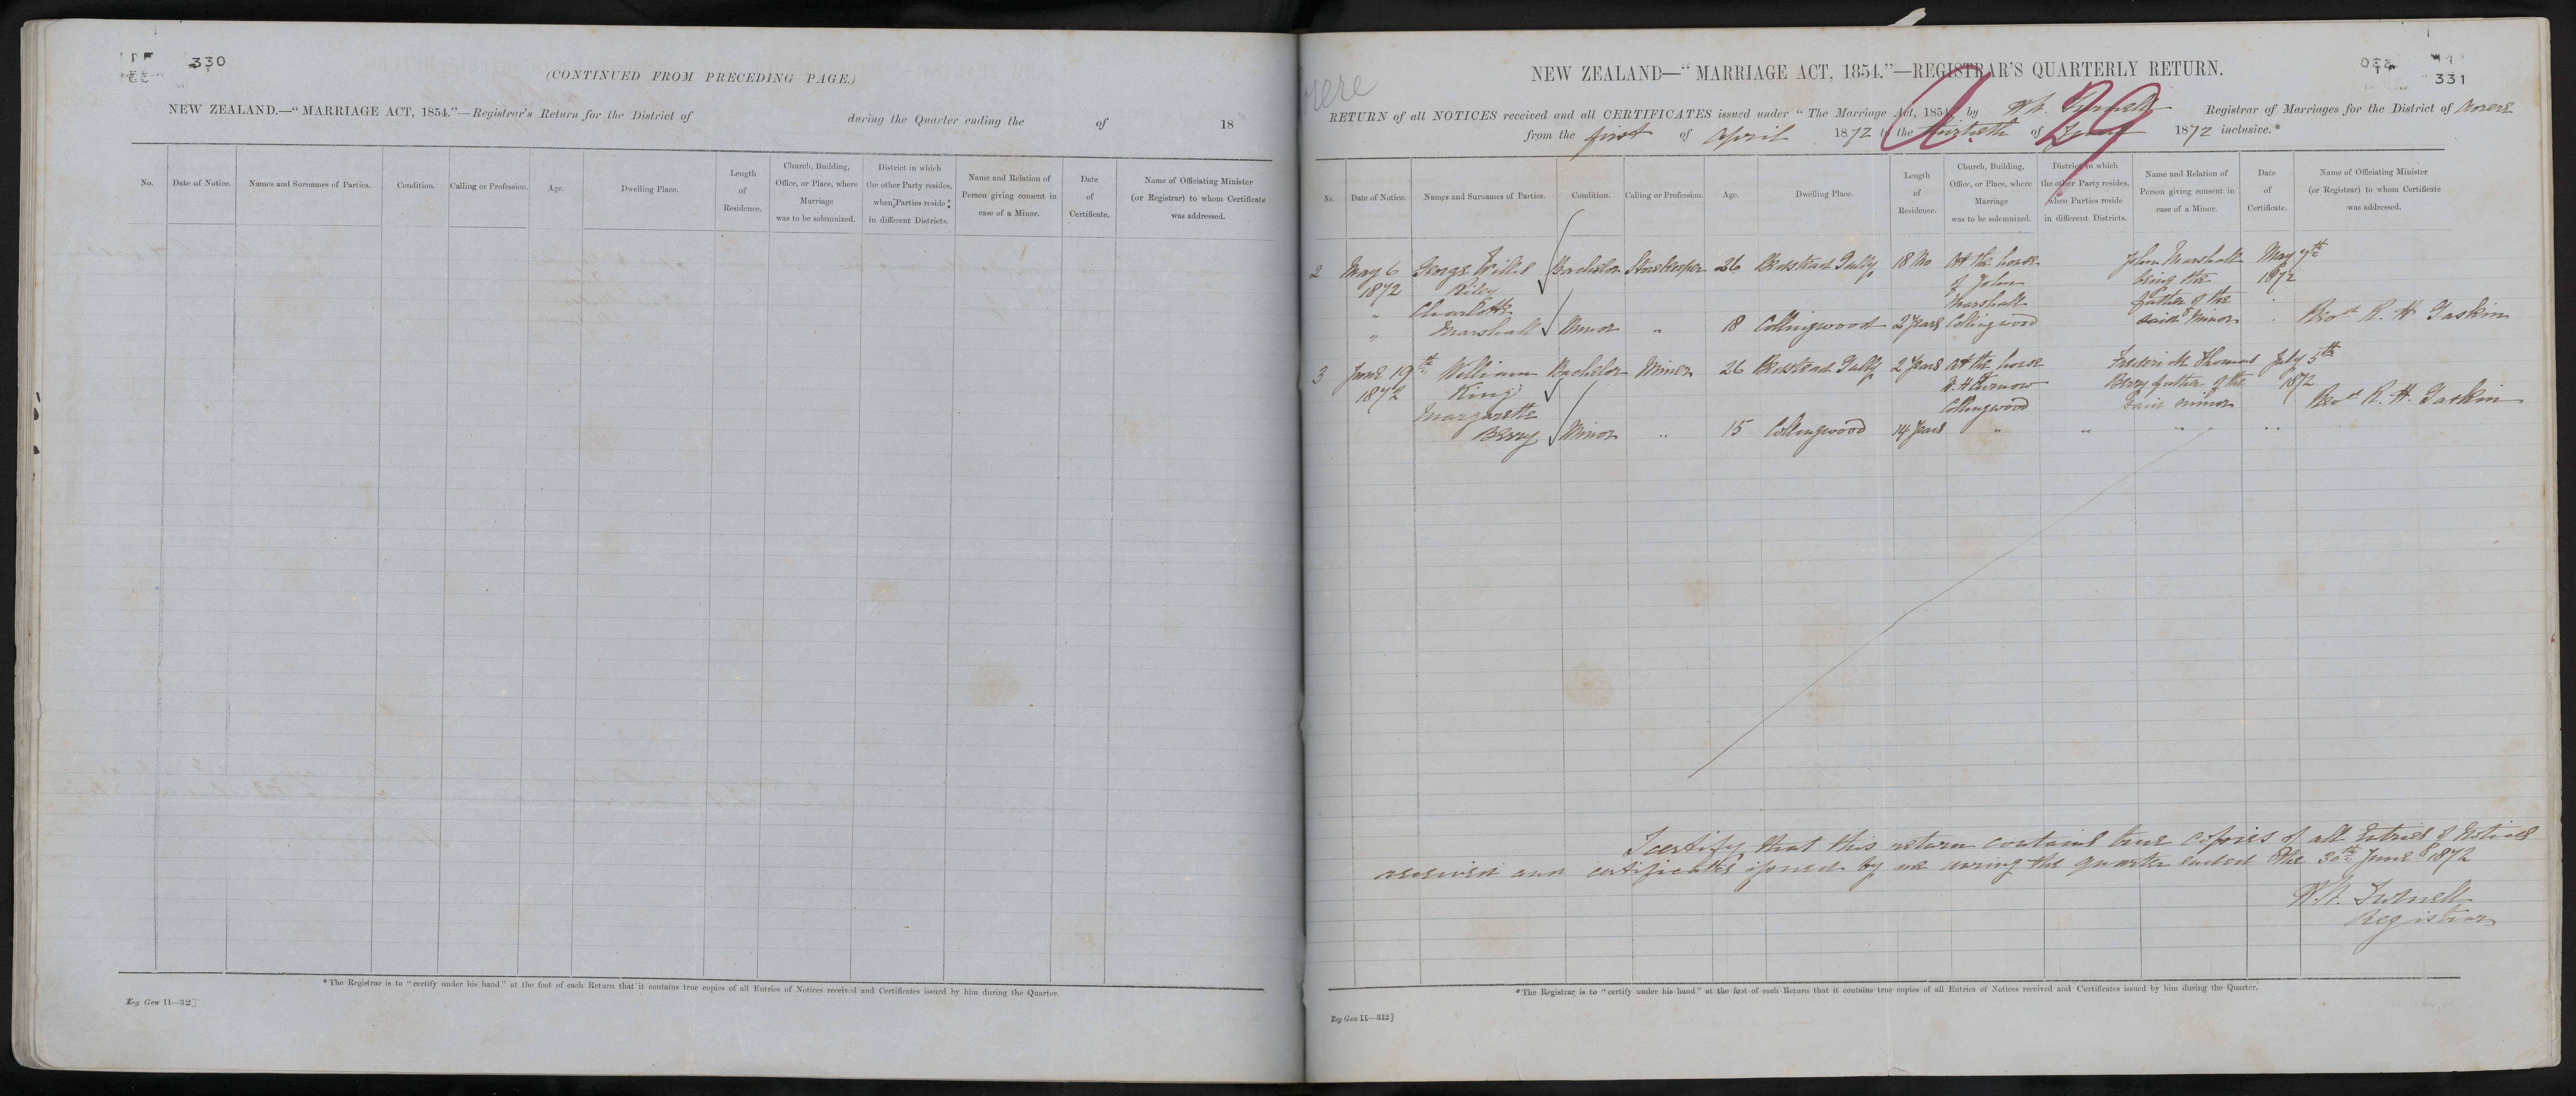 330
(CONTINUED FROM PRECEDING PAGE.)
NEW ZEALAND.—"MARRIAGE ACT, 1854."—Registrar's Return for the District of during the Quarter ending the of 18
No. Date of Notice. Names and Surnames of Parties. Condition. Calling or Profession. Age. Dwelling Place. Length of Residence. Church, Building, Office, or Place, where Marriage was to be solemnized. District in which the other Party resides, when Parties reside in different Districts. Name and Relation of Person giving consent in case of a Minor. Date of Certificate. Name of Officiating Minister (or Registrar) to whom Certificate was addressed.
*The Registrar is to "certify under his hand" at the foot of each Return that it contains true copies of all Entries of Notices received and Certificates issued by him during the Quarter.
Reg. Gen 11—32]
331
NEW ZEALAND—"MARRIAGE ACT, 1854."—REGISTRAR'S QUARTERLY RETURN.
RETURN of all NOTICES received and all CERTIFICATES issued under "The Marriage Act, 1854" by Registrar of Marriages for the District of
from the first of April 1872 to the thirtieth of June 1872 inclusive.*
29
No. Date of Notice. Names and Surnames of Parties. Condition. Calling or Profession. Age. Dwelling Place. Length of Residence. Church, Building, Office, or Place, where Marriage was to be solemnized. District in which the other Party resides, when Parties reside in different Districts. Name and Relation of Person giving consent in case of a Minor. Date of Certificate. Name of Officiating Minister (or Registrar) to whom Certificate was addressed.
2 May 6 George Willis Bachelor Storekeeper 26 Bedstead Gully 18 Mo At the house John Marshall May 7th
1872 Riley of John being the 1872
" Charlotte Marshall father of the
" Marshall Minor " 18 Collingwood 2 Years Collingwood said Minor Revd R. H. Gaskin
3 June 19th William Bachelor Miner 26 Bedstead Gully 2 Years At the house Frederick Thomas July 5th
1872 King W. H. Curnow Berry father of the 1872
Margarette Collingwood said minor Revd R. H. Gaskin
Berry Minor " 15 Collingwood 14 Years " " " "
I certify that this return contains true copies of all Entries of Notices
received and certificates issued by me during the quarter ended the 30th June 1872
Registrar
*The Registrar is to "certify under his hand" at the foot of each Return that it contains true copies of all Entries of Notices received and Certificates issued by him during the Quarter.
Reg Gen 11—312]